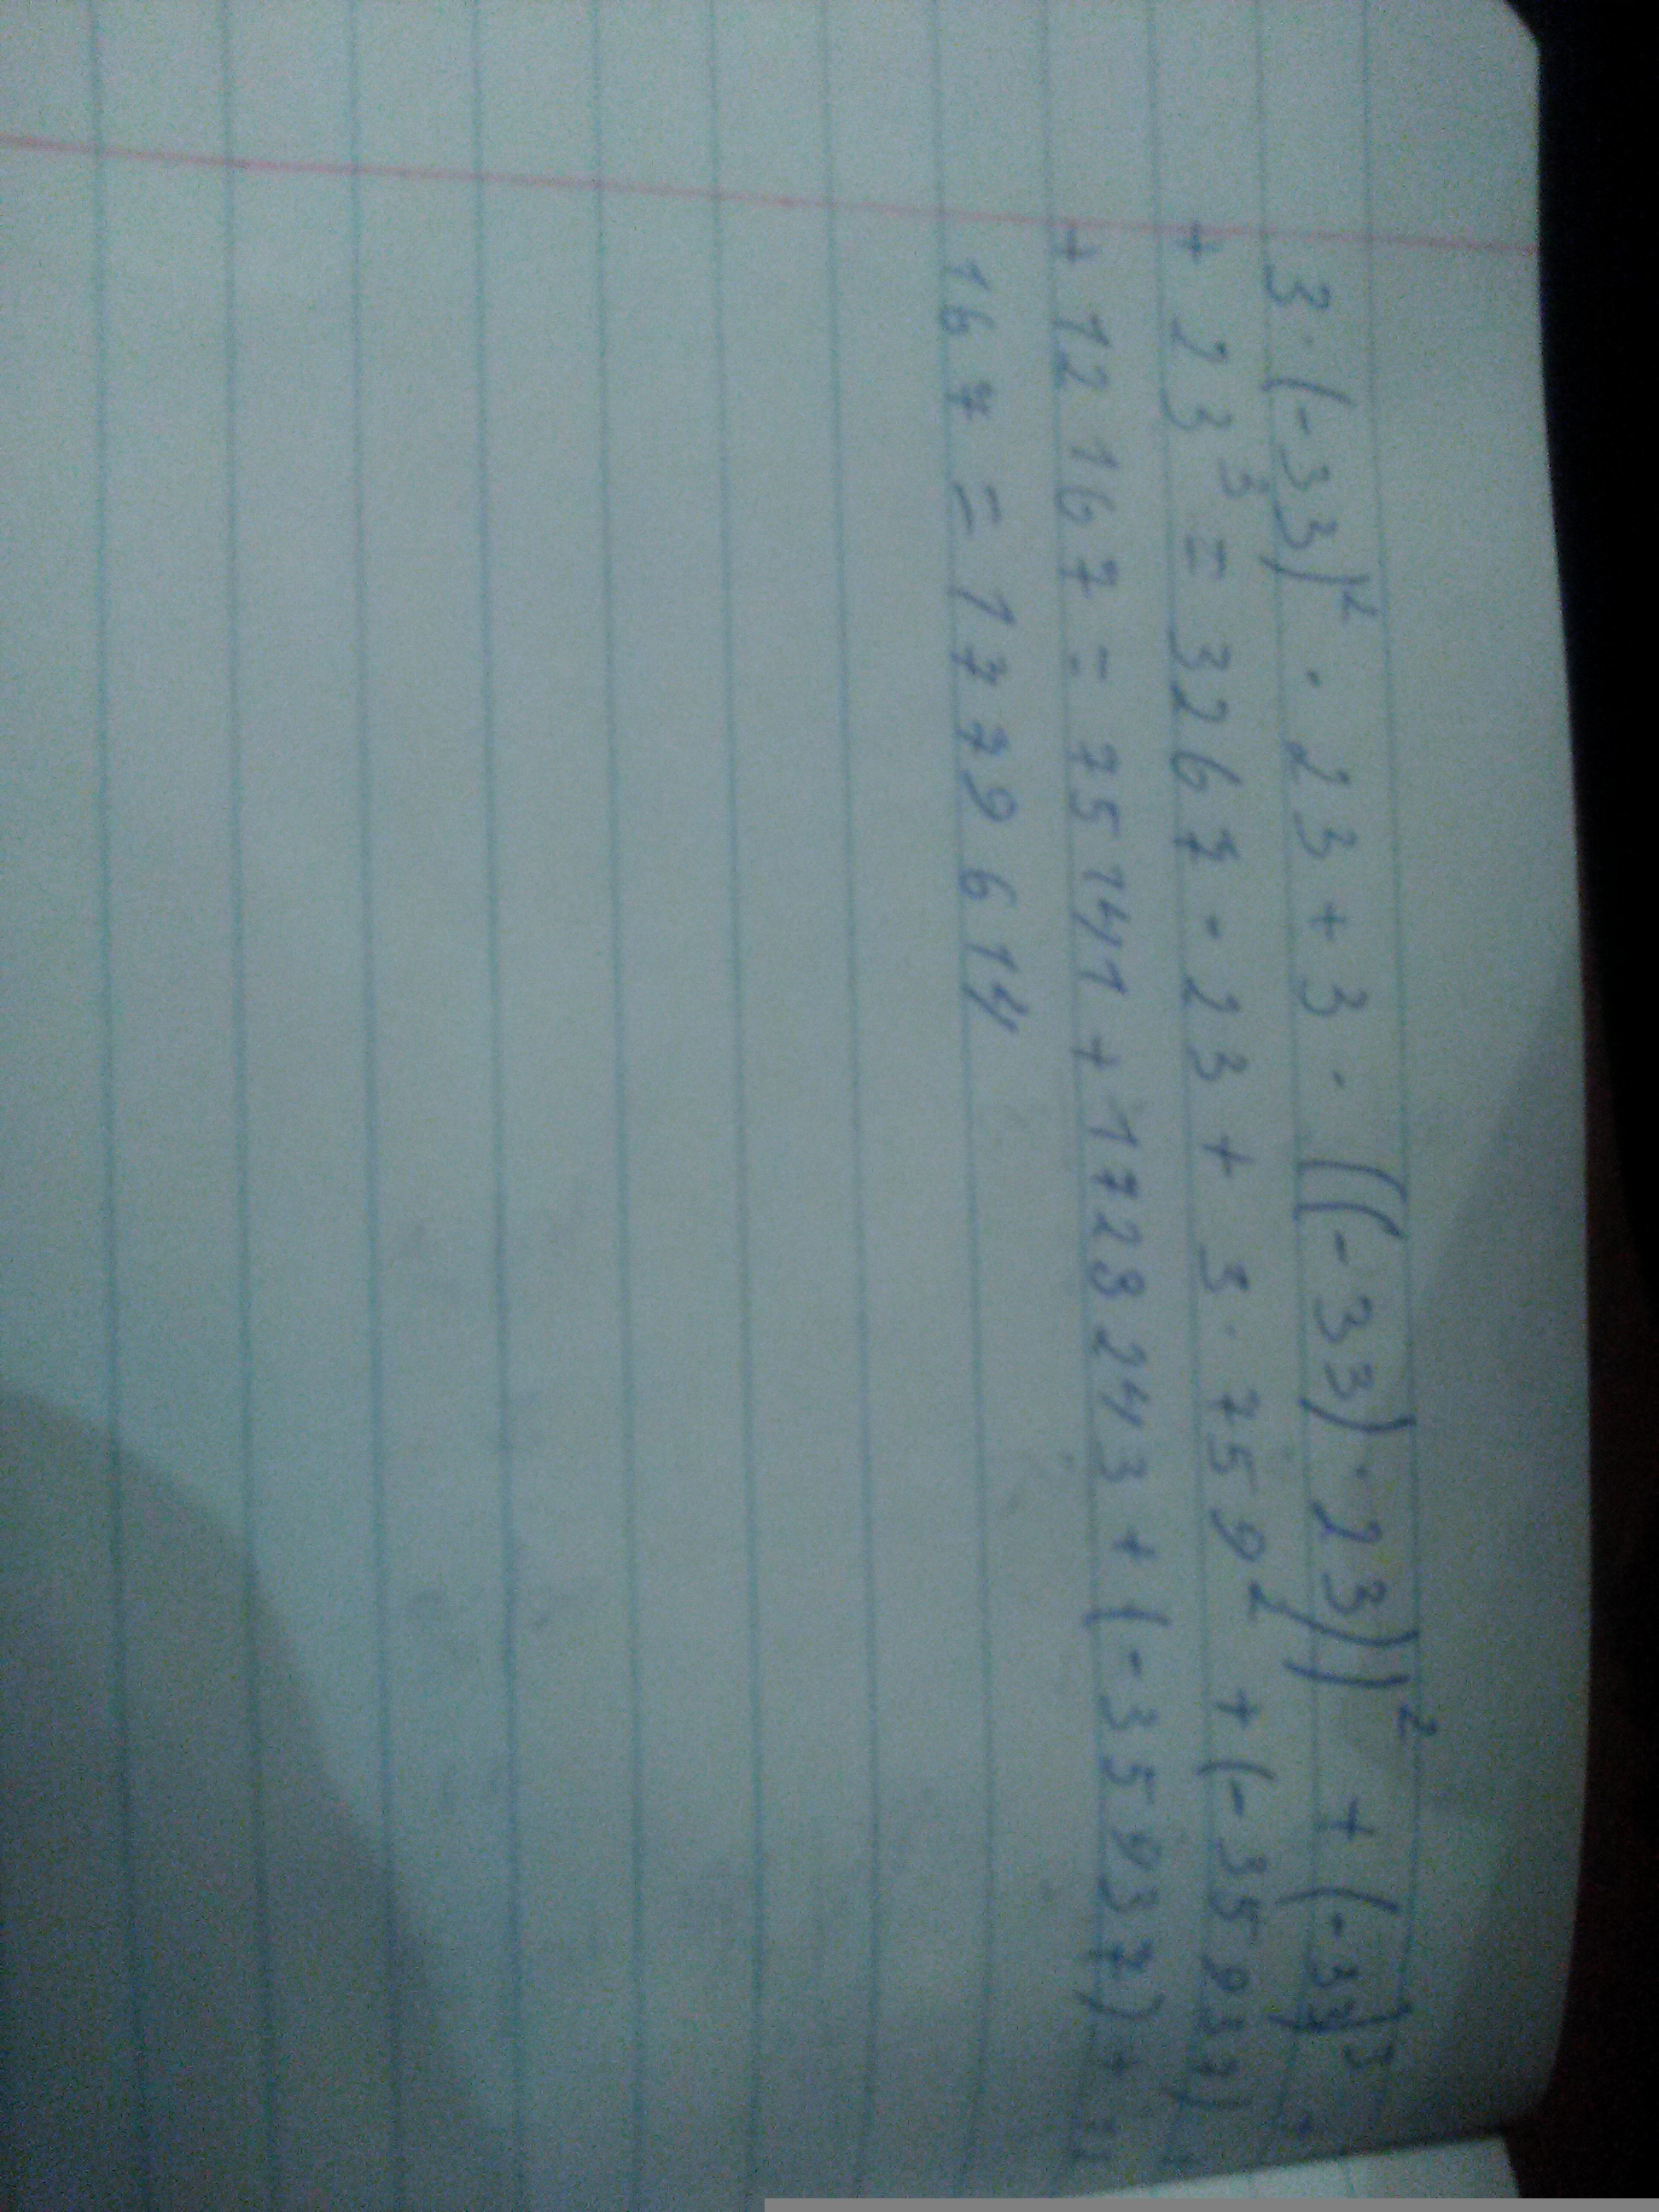 3·(-33)²·23+3·((-33)·23))²+(-33)³+
+23³=3267·23+3·759²+(-35937)
+12167=75141+1728243+(-35937)+12
167=1779614